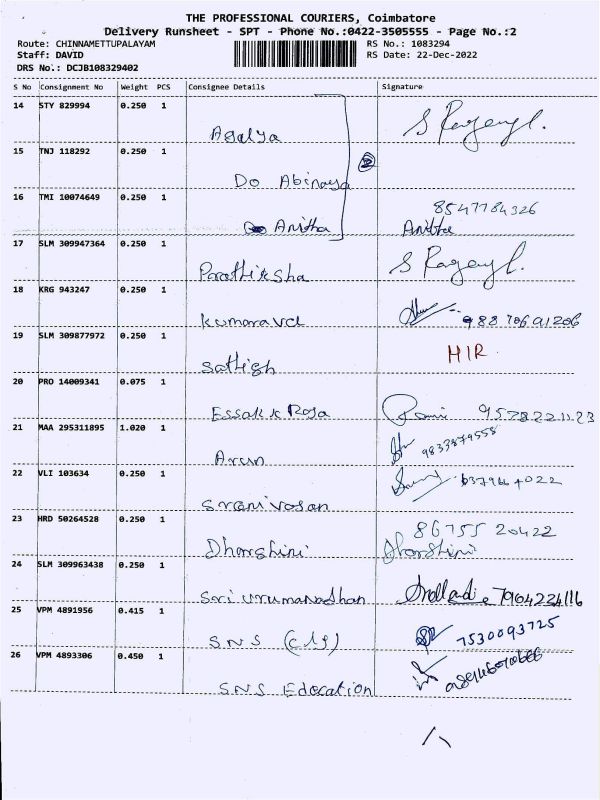 THE PROFESSIONAL COURIERS, Coimbatore
Delivery Runsheet - SPT - Phone No.:0422-3505555 - Page No.:2
Route: CHINNAMETTUPALAYAM RS No.: 1083294
Staff: DAVID RS Date: 22-Dec-2022
DRS No.: DCJB108329402
S No Consignment No Weight PCS Consignee Details Signature
14 STY 829994 0.250 1
Agalya
15 TNJ 118292 0.250 1
Do Abinaya
16 TMI 10074649 0.250 1
8547784326
Anitha Anitha
17 SLM 309947364 0.250 1
18 KRG 943247 0.250 1
19 SLM 309877972 0.250 1
Sathish
20 PRO 14009341 0.075 1
21 MAA 295311895 1.020 1
Arun
22 VLI 103634 0.250 1
23 HRD 50264528 0.250 1
86755 20422
Dharshini Dharshini
24 SLM 309963438 0.250 1
7904224116
25 VPM 4891956 0.415 1
SNS
7530093725
26 VPM 4893306 0.450 1
SNS Education